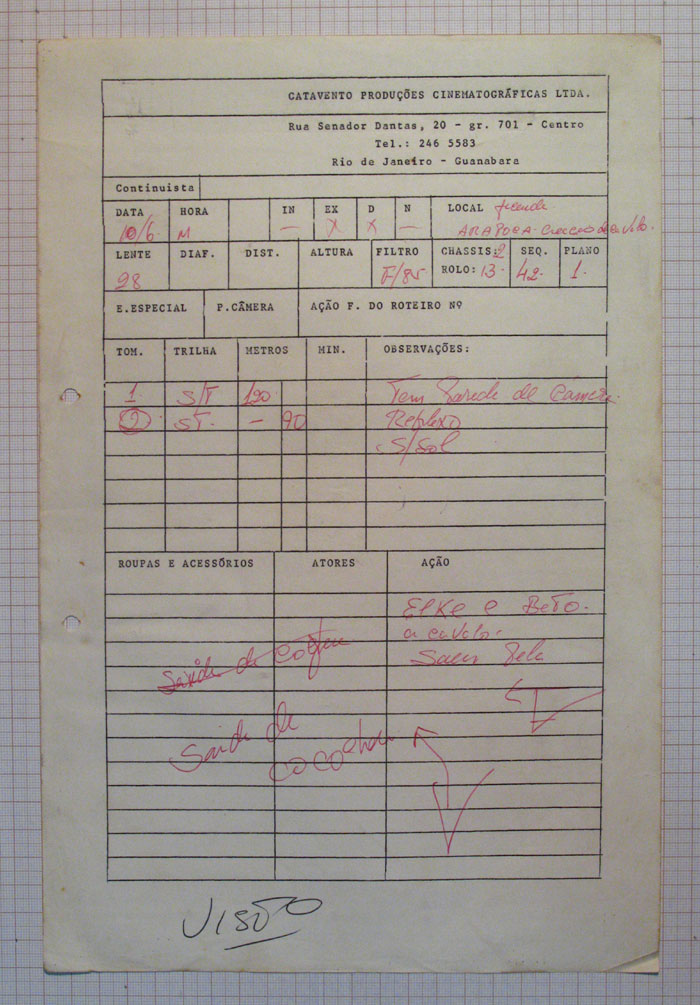 CATAVENTO PRODUÇÕES CINEMATOGRÁFICAS LTDA.
Rua Senador Dantas, 20 - gr. 701 - Centro
Tel.: 246 5583
Rio de Janeiro - Guanabara
Continuista
DATA HORA IN EX D N LOCAL
10/6 M — X X —
LENTE DIAF. DIST. ALTURA FILTRO CHASSIS: 2 SEQ. PLANO
28 F/85 ROLO: 13. 42. 1.
E.ESPECIAL P.CÂMERA AÇÃO F. DO ROTEIRO Nº
TOM. TRILHA METROS MIN. OBSERVAÇÕES:
1 S/T 120 Tem de Câmera
2 ST. — 90 Reflexo
S/Sol
ROUPAS E ACESSÓRIOS ATORES AÇÃO
Elke e Beto.
a cavalo.
Saem
Saida de
Saida de
VISÃO